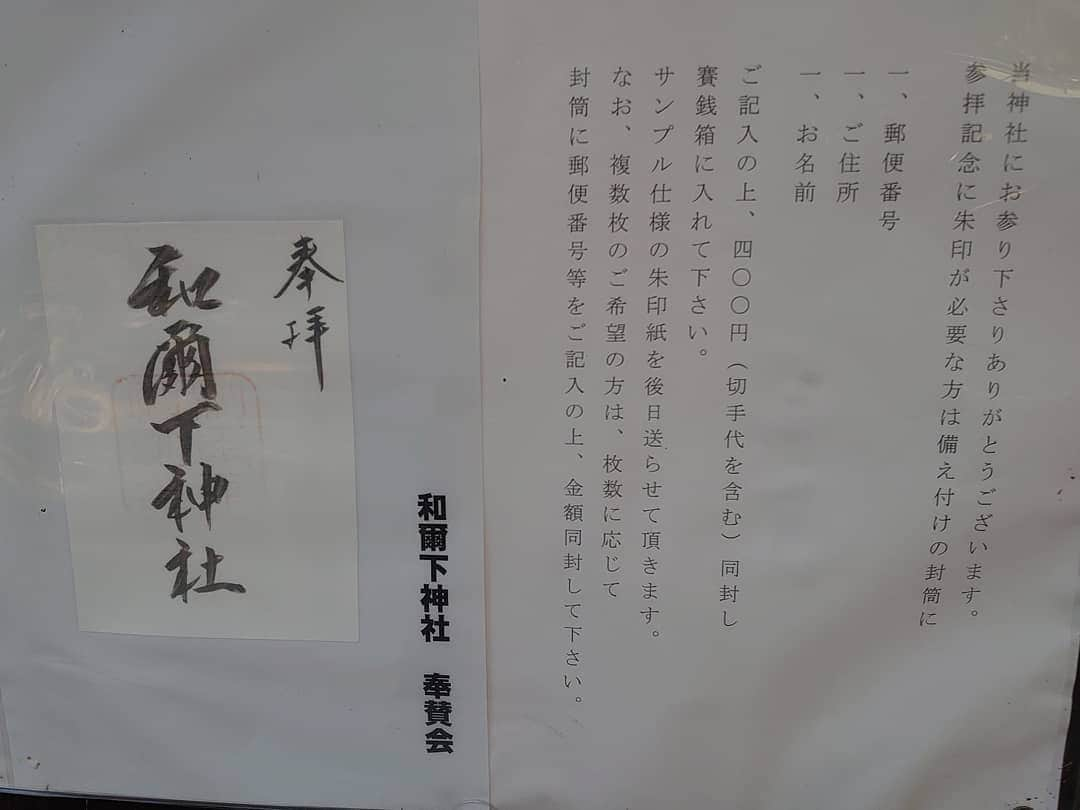 当神社にお参り下さりありがとうございます。
参拝記念に朱印が必要な方は備え付けの封筒に
一、郵便番号
一、ご住所
一、お名前
ご記入の上、四〇〇円（切手代を含む）同封し
賽銭箱に入れて下さい。
サンプル仕様の朱印紙を後日送らせて頂きます。
なお、複数枚のご希望の方は、枚数に応じて
封筒に郵便番号等をご記入の上、金額同封して下さい。
和爾下神社　奉賛会
奉拝
和爾下神社